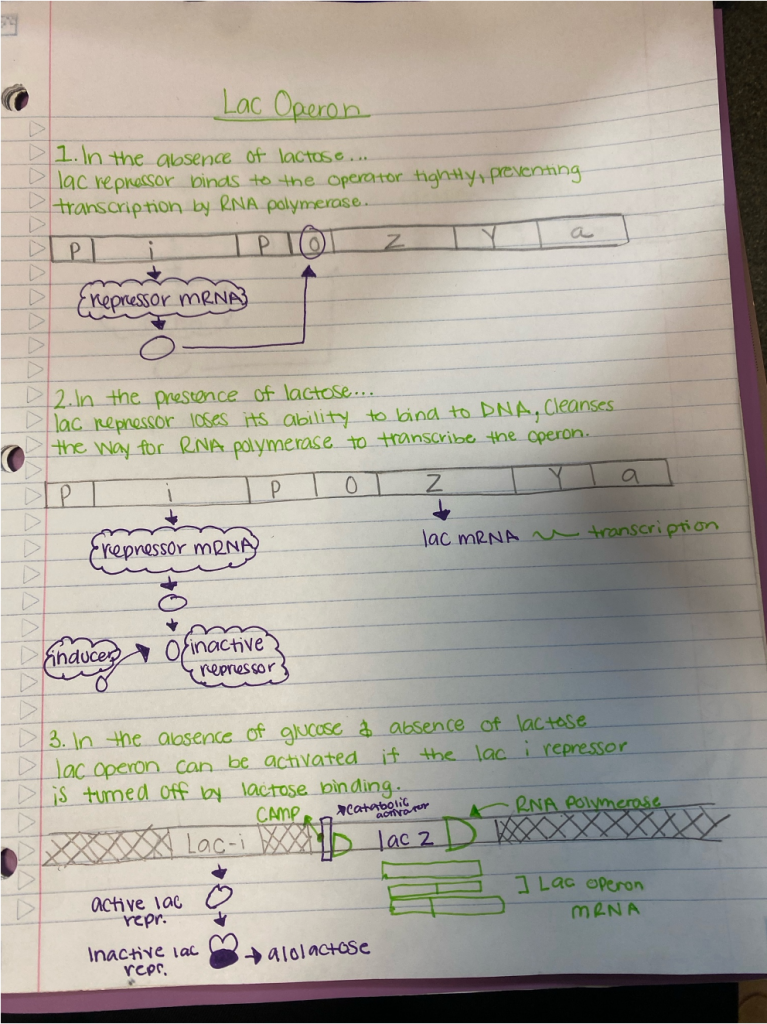 Lac Operon
1. In the absence of lactose...
lac repressor binds to the operator tightly, preventing
transcription by RNA polymerase.
P i P O Z Y a
repressor mRNA
2. In the prescence of lactose...
lac repressor loses its ability to bind to DNA, cleanses
the way for RNA polymerase to transcribe the operon.
P i P O Z Y a
repressor mRNA
lac mRNA transcription
inducer
inactive
repressor
3. In the absence of glucose & absence of lactose
lac operon can be activated if the lac i repressor
is turned off by lactose binding.
CAMP
Catabolic
activator
RNA Polymerase
Lac-i
lac z
active lac
repr.
Lac operon
mRNA
Inactive lac
repr.
alolactose